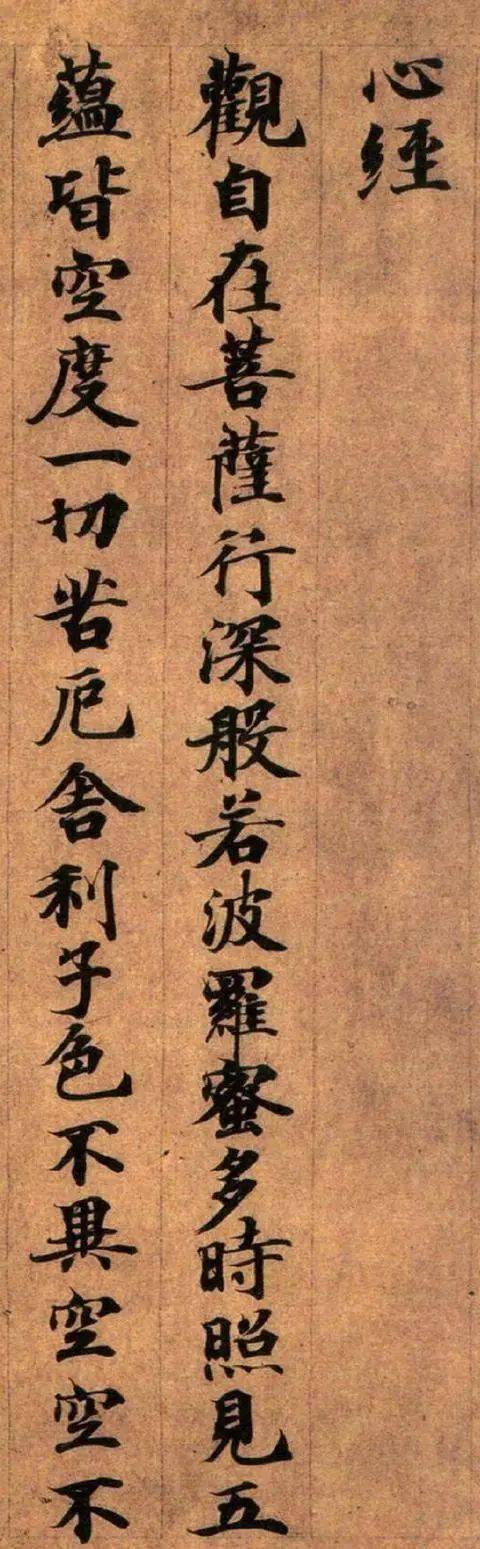 心經
觀自在菩薩行深般若波羅蜜多時照見五
蘊皆空度一切苦厄舍利子色不異空空不